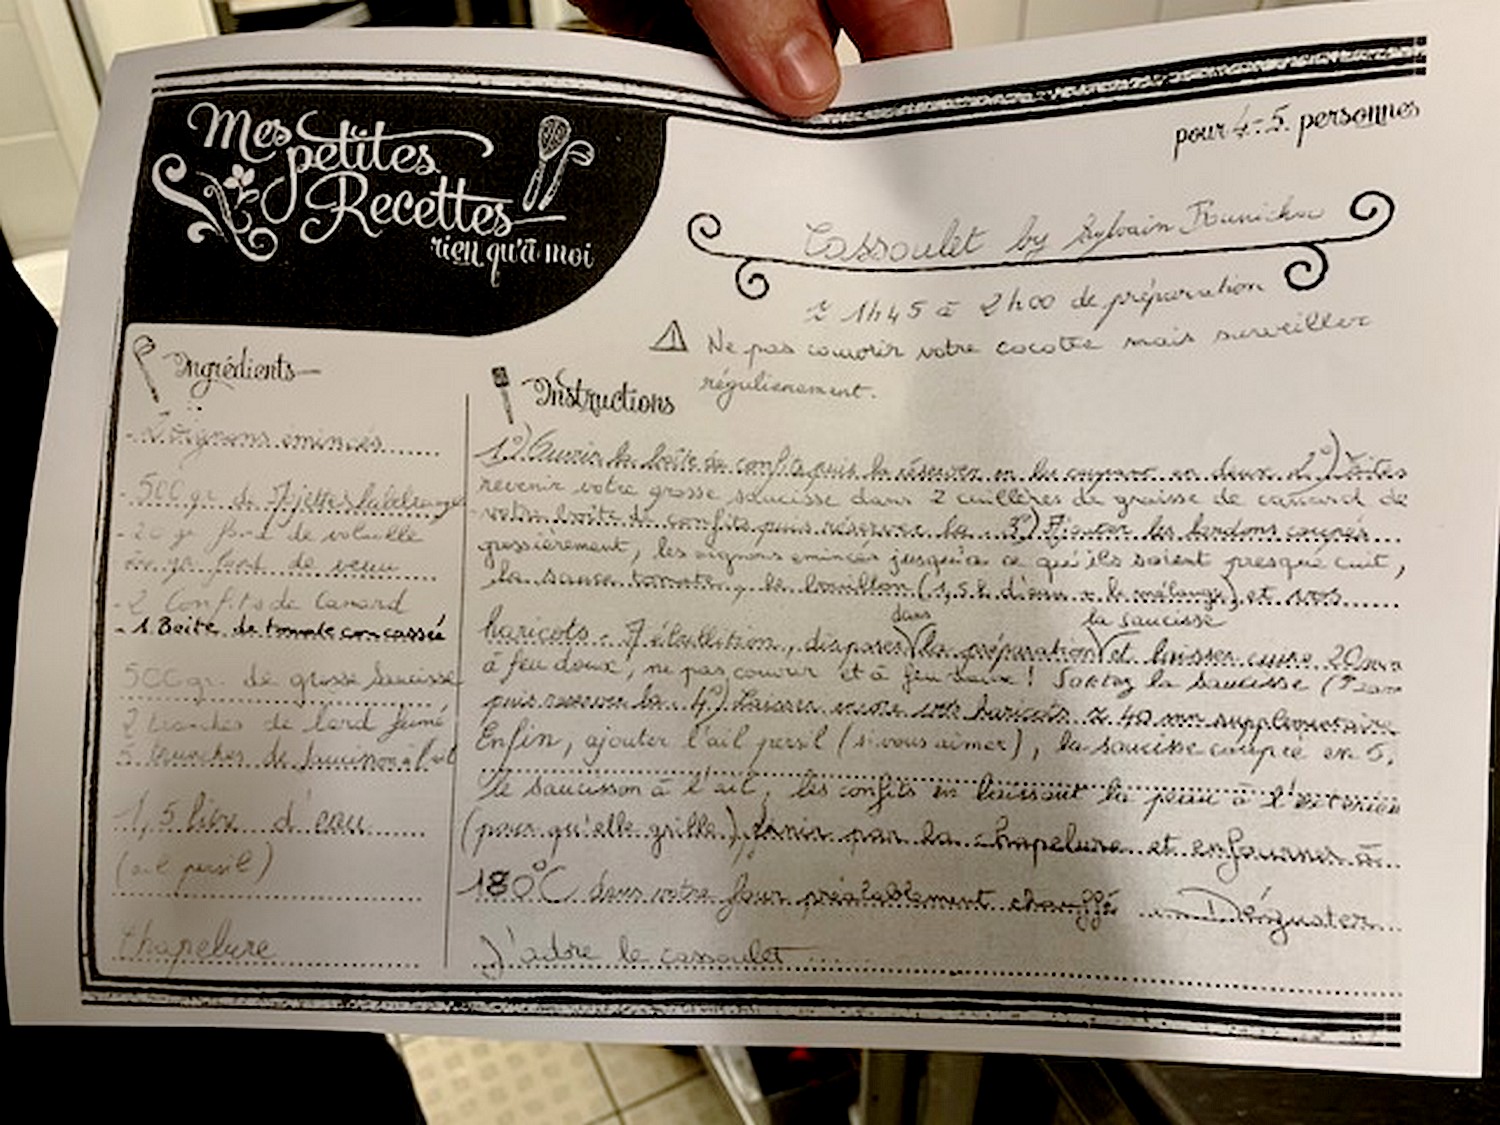 Mes
petites
Recettes
rien qu'à moi
pour 4-5 personnes
Cassoulet by Sylvain
≈ 1h45 à 2h00 de préparation
⚠ Ne pas couvrir votre cocotte mais surveiller
régulièrement.
Ingrédients
- 2 oignons émincés
- 500 gr de
- 20 gr fond de volaille
gr fond de veau
- 2 Confits de Canard
- 1 Boite de tomate concassée
500 gr de grosse Saucisse
2 tranches de lard fumé
5 tranches de saucisson à l'ail
1,5 litre d'eau
(ail persil)
Chapelure
Instructions
1°) Ouvrir la boîte de confits puis la réserver en les coupant en deux 2°) Faites
revenir votre grosse saucisse dans 2 cuillères de graisse de canard de
votre boîte de confits puis réserver la. 3°) Ajouter les lardons coupés
grossièrement, les oignons émincés jusqu'à ce qu'ils soient presque cuit,
la sauce tomate, le bouillon (1,5 L d'eau + le mélange) et vos
dans la saucisse
haricots - A ébullition, disposer la préparation et laisser cuire 20 mn
à feu doux, ne pas couvrir et à feu doux ! Sortez la saucisse
puis reserver la. 4°) Laisser encore vos haricots ≈ 40 mn supplémentaire
Enfin, ajouter l'ail persil (si vous aimer), la saucisse coupée en 5,
le saucisson à l'ail, les confits en laissant la peau à l'extérieur
(pour qu'elle grille), finir par la chapelure et enfournes à
180°C dans votre four préalablement chauffé ... Déguster
J'adore le cassoulet ....